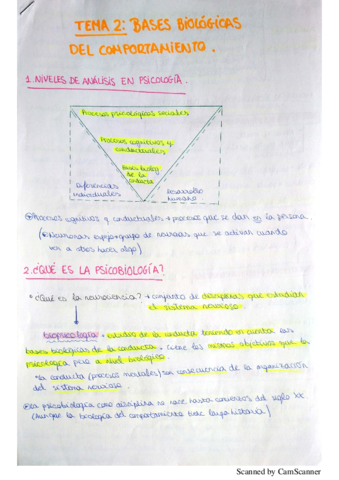 TEMA 2: BASES BIOLÓGICAS
DEL COMPORTAMIENTO.
1. NIVELES DE ANÁLISIS EN PSICOLOGÍA.
Procesos psicológicos sociales
Procesos cognitivos y
conductuales
Bases biológ.
de la
conducta
Diferencias
individuales
Desarrollo
humano
Procesos cognitivos y conductuales → procesos que se dan en la persona.
(neuronas espejo → grupo de neuronas que se activan cuando
ves a otros hacer algo)
2. ¿QUÉ ES LA PSICOBIOLOGÍA?
¿Qué es la neurociencia? → conjunto de disciplinas que estudian
el sistema nervioso
estudio de la conducta teniendo en cuenta las
bases biológicas de la conducta
tiene los mismos objetivos que la
psicología pero a nivel biológico
la conducta (procesos mentales) son consecuencia de la organización
del sistema nervioso.
La psicobiología como disciplina no nace hasta comienzos del siglo XX
(aunque la biología del comportamiento tiene larga historia)
Scanned by CamScanner